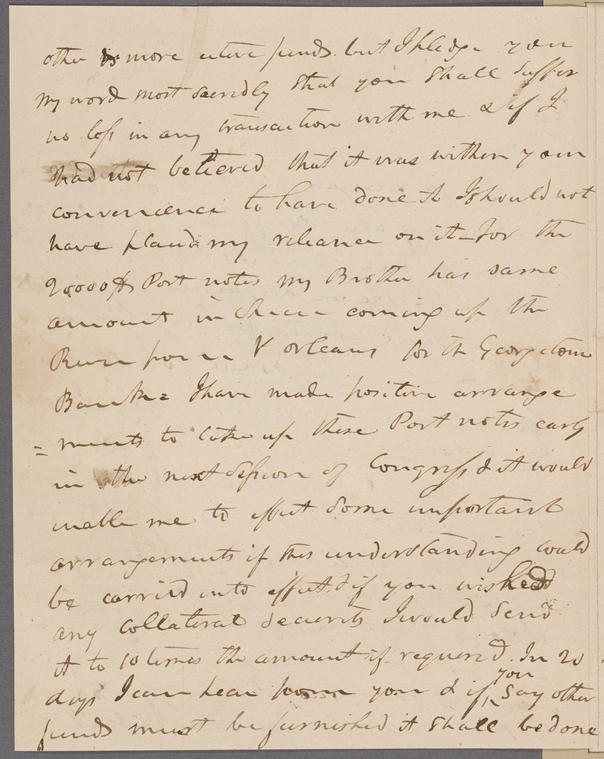 other is more active funds. but I pledge you
my word most sacredly that you shall suffer
no loss in any transaction with me & if I
had not believed that it was within your
convenience to have done it I should not
have placed my reliance on it – for the
20,000$ Post notes my Brother has same
amount in coming up the
River from N orleans for the Georgetown
Bank = I have made positive arrange
= ments to take up these Post notes early
in the next Session of Congress & it would
enable me to effect some important
arrangements if this understanding could
be carried into effect & if you wished
any Collateral security I would send
it to 10 times the amount if required. In 20
days I can hear from you & if you say other
funds must be furnished it shall be done